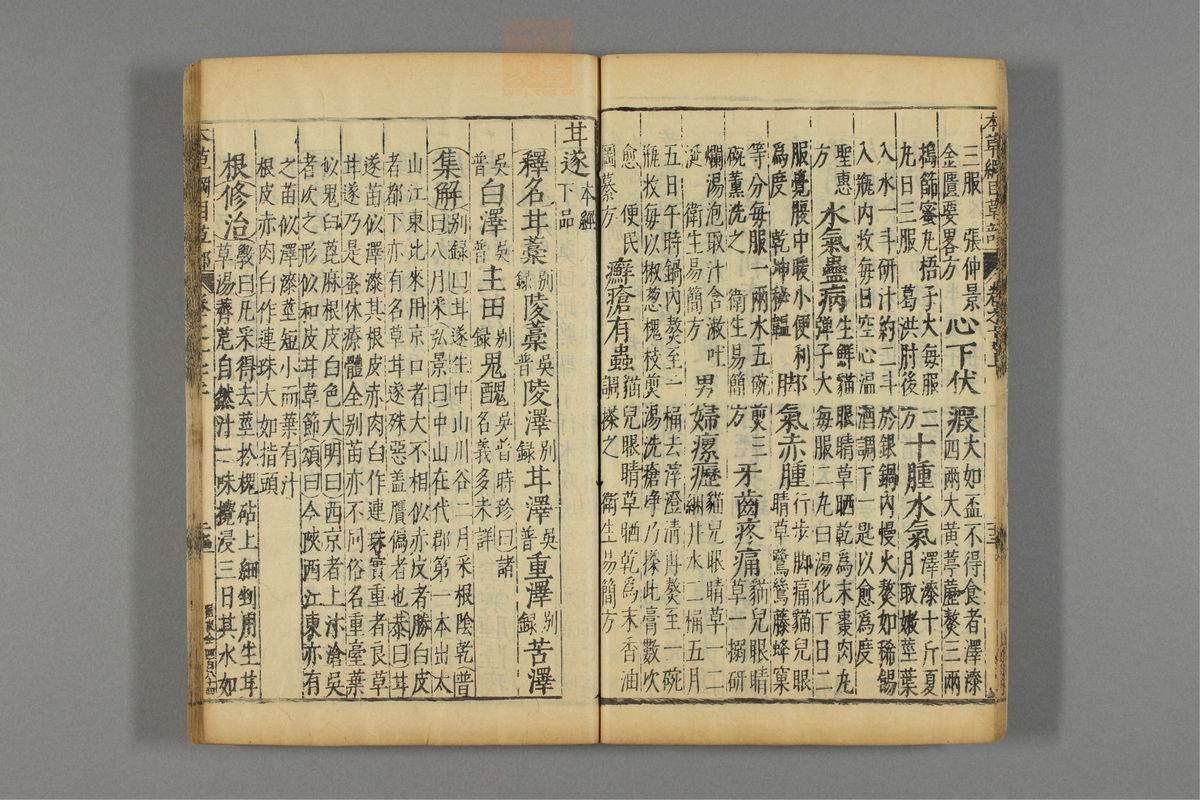 本草綱目草部
三服　張仲景
金匱要畧方
心下伏瘕
大如盃不得食者澤漆
四兩大黃葶藶熬三兩
搗篩蜜丸梧子大每服二
丸日三服　葛洪肘後方
十腫水氣
澤漆十斤夏
月取嫩莖葉
入水一斗研汁約二斗於銀鍋內慢火熬如稀餳
入瓶內收每日空心溫酒調下一匙以愈爲度
聖惠
方
水氣蠱病
生鮮貓眼睛草晒乾爲末棗肉丸
彈子大每服二丸白湯化下日二
服覺腹中暖小便利
爲度　乾坤秘韞
脚氣赤腫
行步脚痛貓兒眼
睛草鷺鷥藤蜂窠
等分每服一兩水五碗煎三
碗薰洗之　衛生易簡方
牙齒疼痛
貓兒眼睛
草一搦研
爛湯泡取汁含漱吐
涎　衛生易簡方
男婦瘰癧
貓兒眼睛草一二
綑井水二桶五月
五日午時鍋內熬至一桶去滓澄清再熬至一碗
瓶收每以椒葱槐枝煎湯洗瘡净乃搽此膏數次
愈　便民
圖纂方
癬瘡有蟲
貓兒眼睛草晒乾爲末香油
調搽之　衛生易簡方
甘遂本經下品
釋名甘藁別錄陵藁吳普陵澤別錄甘澤吳普重澤別錄苦澤
吳普白澤吳普主田別錄鬼醜吳普時珍曰諸名義多未詳
集解
別録曰甘遂生中山川谷二月采根陰乾普
曰八月采弘景曰中山在代郡第一本出太
山江東比來用京口者大不相似赤皮者勝白皮
者都下亦有名草甘遂殊惡盖贋偽者也恭曰甘
遂苗似澤漆其根皮赤肉白作連珠實重者良草
甘遂乃是蚤休療體全别苗亦不同俗名重臺葉
似鬼臼蓖麻根皮白色大明曰西京者上汴滄吳
者次之形似和皮甘草節頌曰今陝西江東亦有
之苗似澤漆莖短小而葉有汁
根皮赤肉白作連珠大如指頭
根修治
斅曰凡采得去莖於槐砧上細剉用生甘
草湯薺苨自然汁二味攪浸三日其水如
本草綱目草部